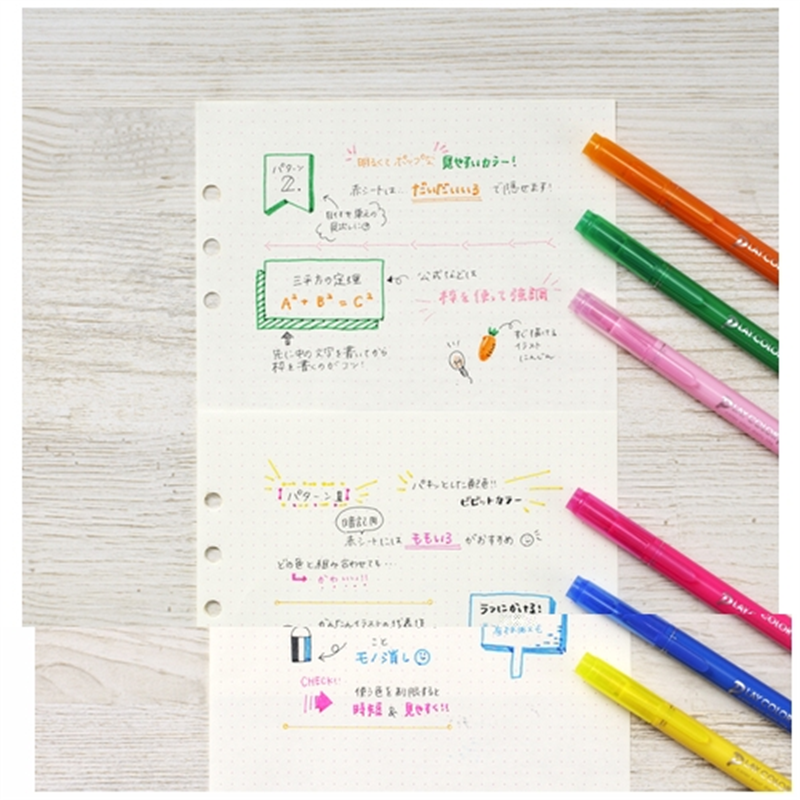 パターン
2.
明るくてポップな 見せすいカラー!
赤シートは… だいだいいろ で隠せます!
目だせや単元の
見出しに◎
三平方の定理
A²+B²=C²
公式などは
枠を使って強調
先に中の文字を書いてから
枠を書くのがコツ!
すぐ描ける
イラスト
にんじん
パターン
パキッとした配色!!
ビビットカラー
暗記用
赤シートには ももいろ がおすすめ
どの色と組み合わせても…
かわいい!!
ラフにかける!
こと
モノ消し
CHECK!!
使う色を制限すると
時短 & 見せすく!!
PLAY COLOR
PLAY COLOR
PLAY COLOR
PLAY COLOR
PLAY COLOR
PLAY COLOR